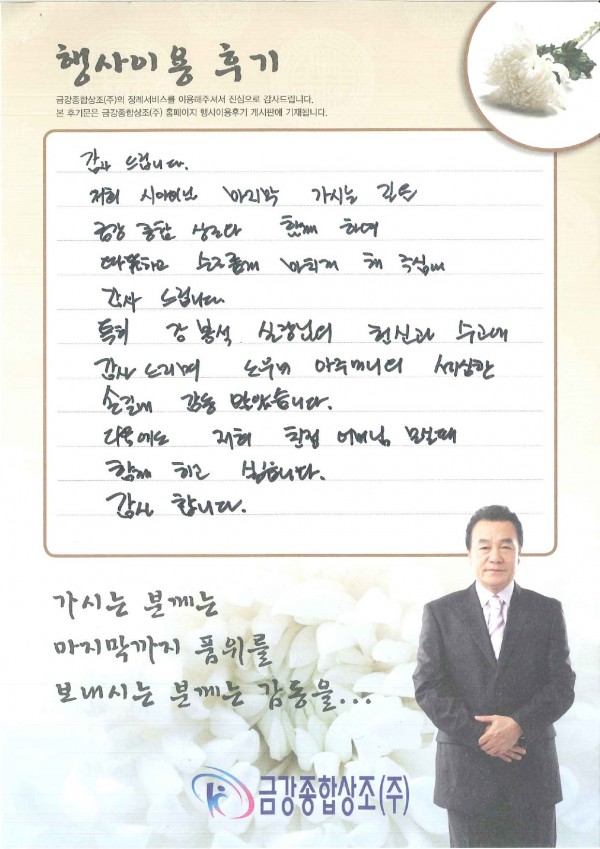 행사이용 후기
금강종합상조(주)의 장례서비스를 이용해주셔서 진심으로 감사드립니다.
본 후기문은 금강종합상조(주) 홈페이지 행사이용후기 게시판에 기재됩니다.
감사 드립니다.
저희 시아버님 마지막 가시는 길을
금강 종합 상조와 함께 하며
따뜻하고 순조롭게 마치게 해 주심에
감사 드립니다.
특히 강봉석 실장님의 헌신과 수고에
감사 드리며 도우미 아주머니의 세심한
손길에 감동 받았습니다.
다음에도 저희 친정 어머님 모실때
함께 하고 싶습니다.
감사 합니다.
가시는 분께는
마지막까지 품위를
보내시는 분께는 감동을...
금강종합상조(주)